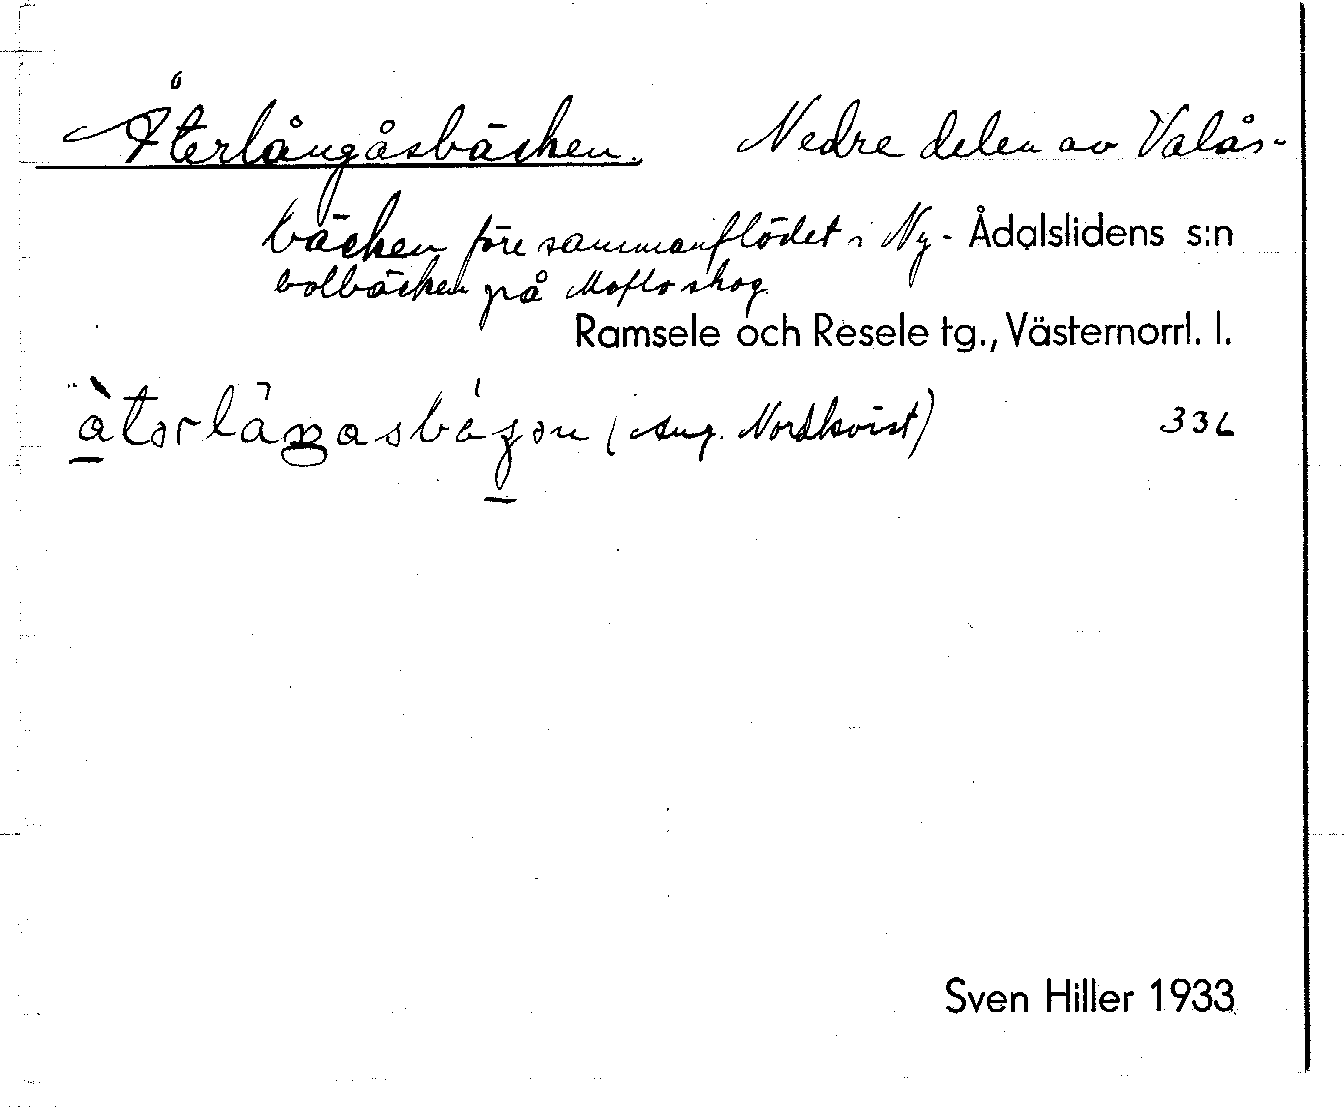 Återlångåsbäcken. Nedre delen av Valås-
bäcken före sammanflödet i Ny- Ådalslidens s:n
bolbäcken på Moflo skog
Ramsele och Resele tg., Västernorrl. l.
(Aug. Nordkvist) 336
Sven Hiller 1933